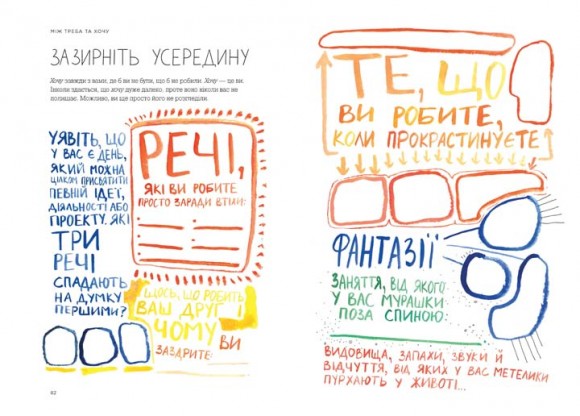 МІЖ ТРЕБА ТА ХОЧУ
ЗАЗИРНІТЬ УСЕРЕДИНУ
Хочу завжди з вами, де б ви не були, що б ви не робили. Хочу — це ви.
Інколи здається, що хочу дуже далеко, проте воно ніколи вас не
полишає. Можливо, ви ще просто його не розгледіли.
УЯВІТЬ, ЩО
У ВАС Є ДЕНЬ,
ЯКИЙ МОЖНА
ЦІЛКОМ ПРИСВЯТИТИ
ПЕВНІЙ ІДЕЇ,
ДІЯЛЬНОСТІ АБО
ПРОЕКТУ. ЯКІ
ТРИ
РЕЧІ
СПАДАЮТЬ
НА ДУМКУ
ПЕРШИМИ?
РЕЧІ,
ЯКІ ВИ РОБИТЕ
ПРОСТО ЗАРАДИ ВТІХИ:
ЩОСЬ, ЩО РОБИТЬ
ВАШ ДРУГ І
ЧОМУ ВИ
ЗАЗДРИТЕ:
62
ТЕ, ЩО
ВИ РОБИТЕ,
КОЛИ ПРОКРАСТИНУЄТЕ
ФАНТАЗІЇ
ЗАНЯТТЯ, ВІД ЯКОГО
У ВАС МУРАШКИ
ПОЗА СПИНОЮ:
ВИДОВИЩА, ЗАПАХИ, ЗВУКИ Й
ВІДЧУТТЯ, ВІД ЯКИХ У ВАС МЕТЕЛИКИ
ПУРХАЮТЬ У ЖИВОТІ...